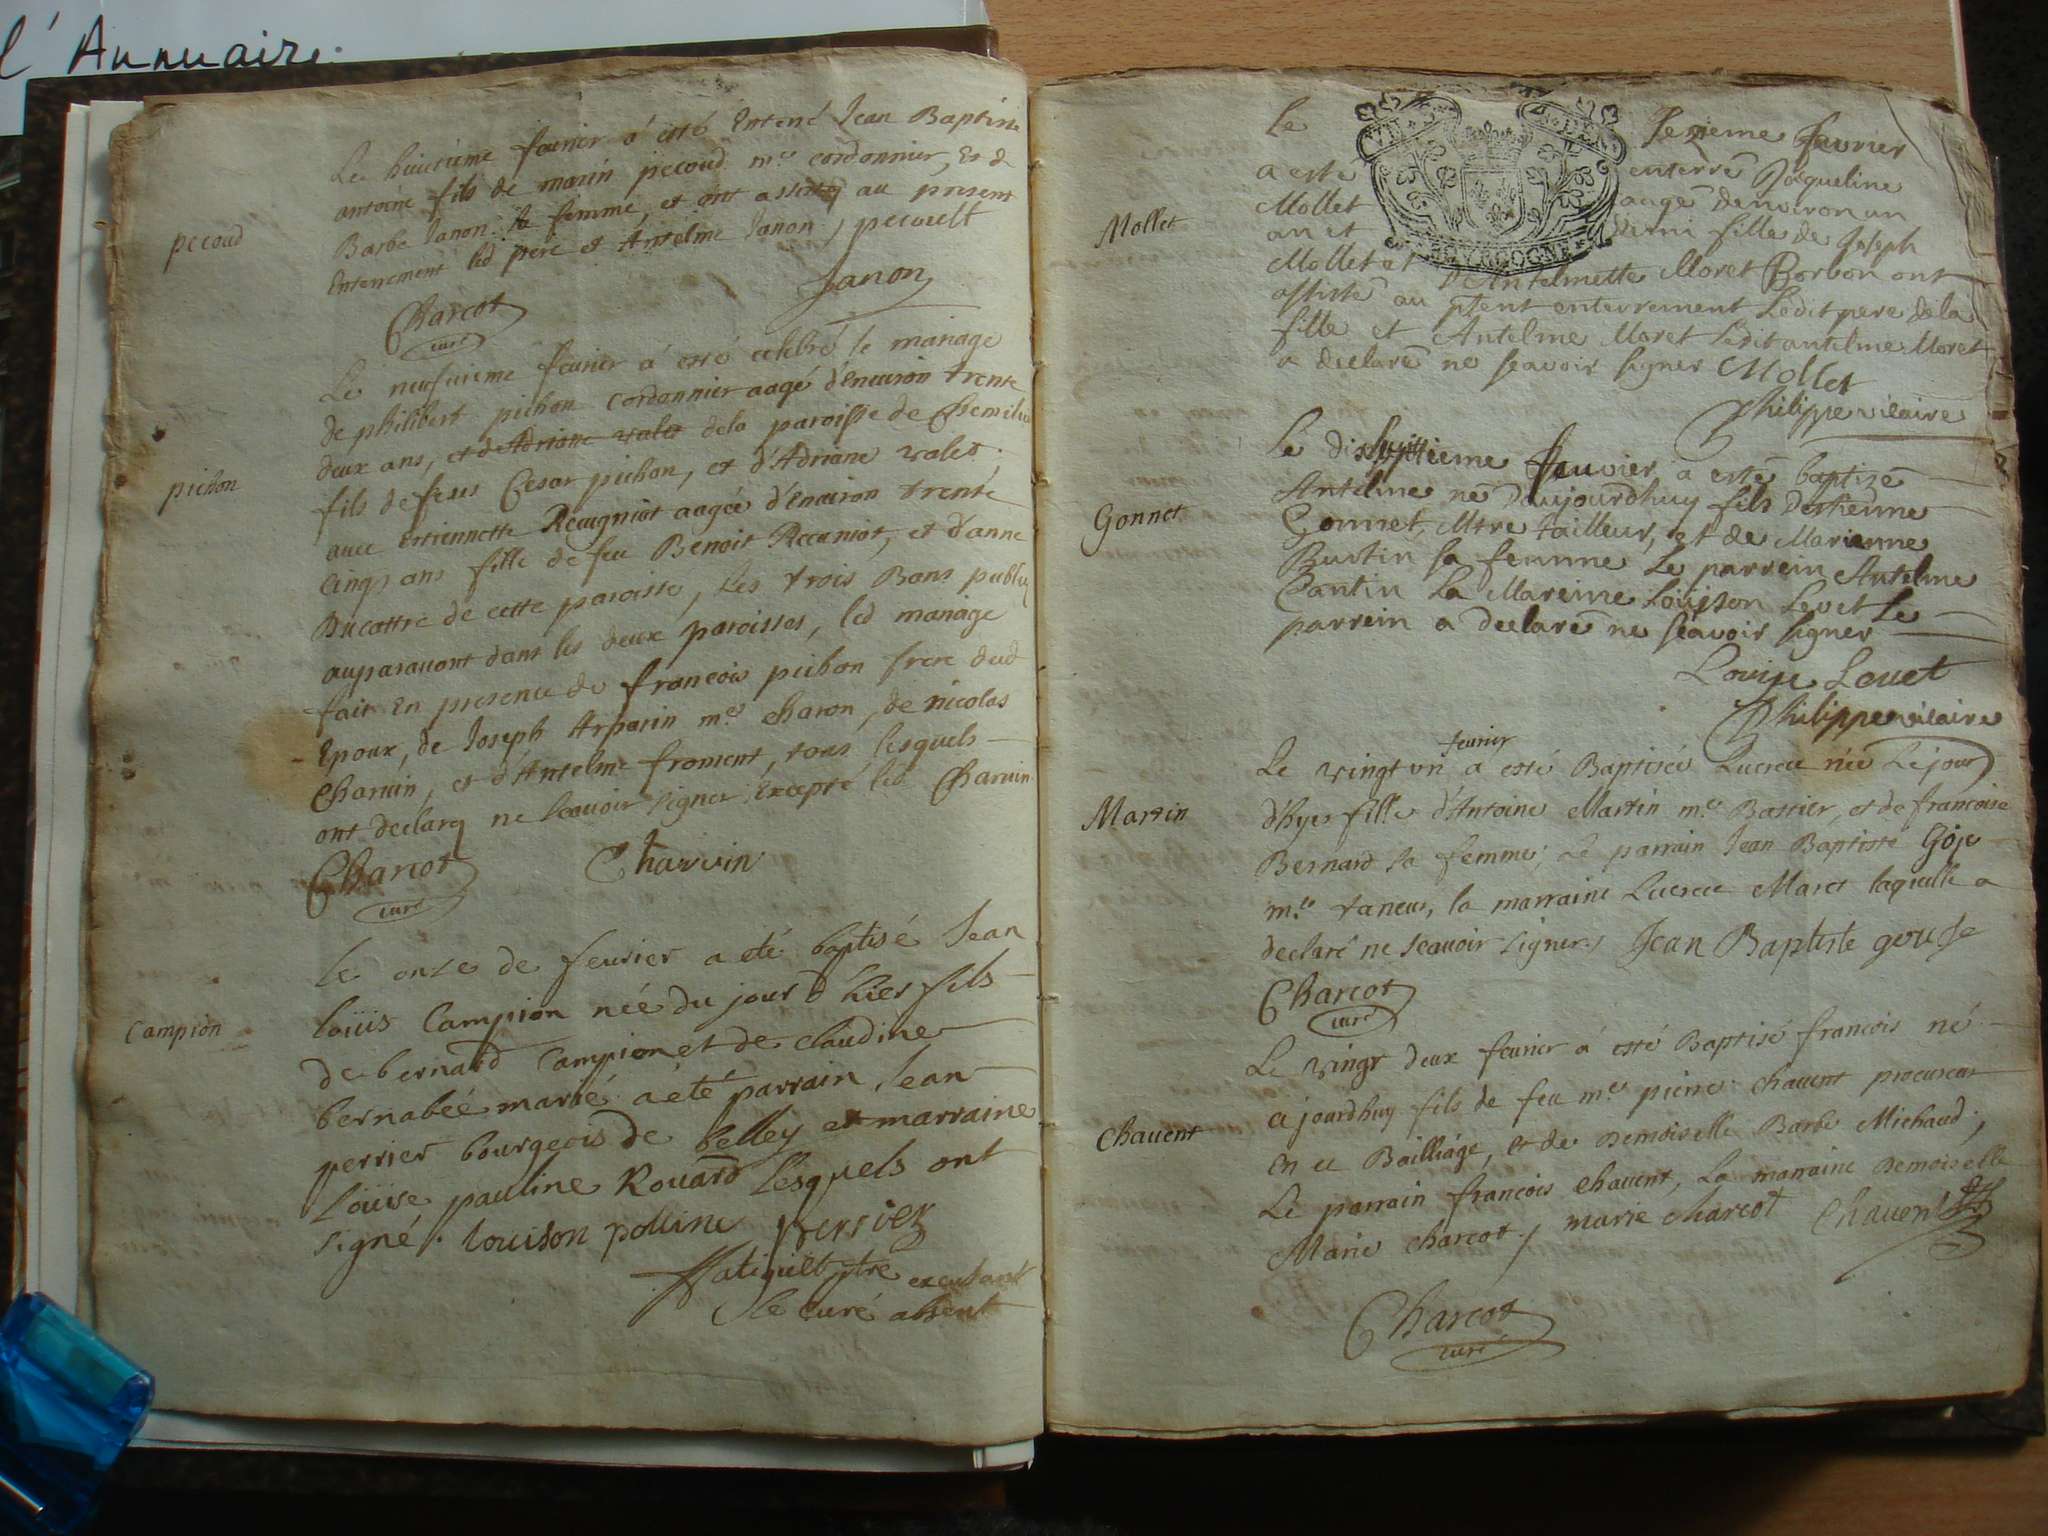 l'Annuaire
pecoud
Le huitieme feurier a esté Enteré Jean Baptiste
antoine fils de marin pecoud me cordonnier, et de
Barbe Janon sa femme, et ont assisté au present
Enterrement led pere et Antelme Janon / pecoult
Janon
Charcot
curé
pichon
Le neufuieme feurier a esté celebré le mariage
de philibert pichon cordonnier aagé d'Enuiron trente
deux ans, et d'Adriane valet de la paroisse de
fils de feus Cesar pichon, et d'Adriane valet,
auec Estiennette Reugniot aagée d'Enuiron trente
cinq ans fille de feu Benoit Recaniot, et d'anne
Ducattre de cette paroisse, Les trois Bans publiez
auparauant dans les deux paroisses, led mariage
fait En presence de francois pichon frere dud
Epoux, de Joseph Arparin me charon, de nicolas
Charuin, et d'Antelme froment, tous lesquels
ont declaré ne scauoir signer Excepté led Charuin
Charcot Charvin
curé
Campion
le onze de feurier a eté baptisé Jean
loüis Campion née du jour d'hier fils
de bernard Campion et de claudine
bernabéé marié a été parrain Jean
perrier bourgeois de belley et marraine
Loüise pauline Rouard lesquels ont
signé. louison polline perrier
ptre excusant
le curé absent
Mollet
Le seizieme feurier
a esté enterré Jacqueline
Mollet aagé denuiron un
an et demi fille de Joseph
Mollet et D'Antelmette Moret Borbon ont
assisté au pñt enterrement Ledit pere de la
fille et Antelme Moret Ledit antelme Moret
a declaré ne sçauoir signer Mollet
Philippe vicaire
Gonnet
Le dishuitieme feuvier a esté baptizé
Antelme né d'aujourdhuy fils destienne
Gonnet, Mtre tailleur, et de Marienne
Bustin sa femme Le parrein Antelme
Cantin La Mareine Loüison Levet Le
parrein a declaré ne sçauoir signer
Louise Levet
Philippe vicaire
Martin
feurier
Le vingt vn a esté Baptisée Lucrece née Le jour
d'hyer fille d'Antoine Martin me Bastier, et de francoise
Bernard sa femme; Le parrain Jean Baptiste Goje
me taneur, la marraine Lucrece Maret laquelle a
declaré ne scauoir signer / Jean Baptiste gouse
Charcot
curé
Chauent
Le vingt deux feurier a esté Baptisé francois né
ajourdhuy fils de feu me pierre chauent procureur
en ce Bailliage, et de Demoiselle Barbe Michaud,
Le parrain francois chauent, La marraine Demoiselle
Marie charcot / marie charcot Chauent
Charcot
curé